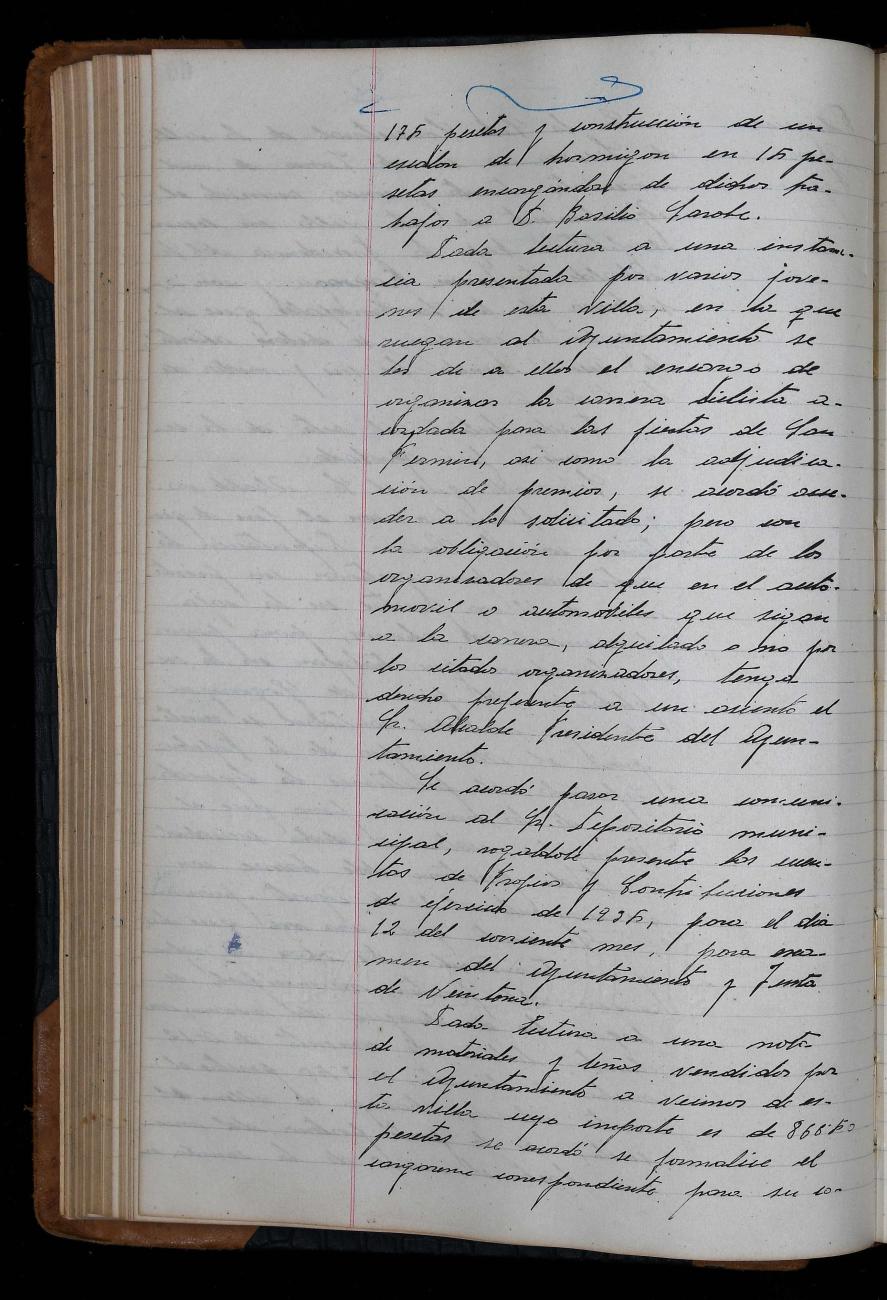 175 pesetas y construcción de un
escalon de hormigon en 15 pe-
setas encargándose de dichos tra-
bajos a D. Basilio Sarobe.
Dada lectura a una instan-
cia presentada por varios jove-
nes de esta villa, en la que
ruegan al Ayuntamiento se
les de a ellos el encargo de
organizar la carrera ciclista a-
cordada para las fiestas de San
Fermin, asi como la adjudica-
ción de premios, se acordó acce-
der a lo solicitado; pero con
la obligación por parte de los
organizadores de que en el auto-
movil o automobiles que sigan
a la carrera, alquilado o no por
los citados organizadores, tenga
derecho preferente a un asiento el
Sr. Alcalde Presidente del Ayun-
tamiento.
Se acordó pasar una comuni-
cación al Sr. Depositario muni-
cipal, rogaldole presente las cuen-
tas de Propios y Contribuciones
de ejercicio de 1935, para el dia
12 del corriente mes, para exa-
men del Ayuntamiento y Junta
de Veintena.
Dada lectura a una nota
de materiales y leñas vendidos por
el Ayuntamiento a vecinos de es-
ta villa cuyo importe es de
pesetas se acordó se formalice el
cargareme correspondiente para su co-